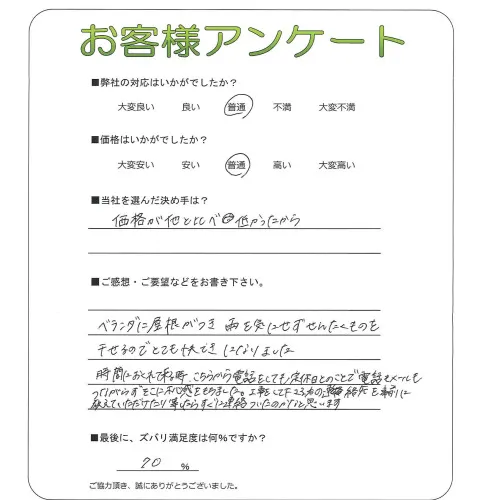 お客様アンケート
■弊社の対応はいかがでしたか？
大変良い 良い 普通 不満 大変不満
■価格はいかがでしたか？
大変安い 安い 普通 高い 大変高い
■当社を選んだ決め手は？
価格が他と比べ低かったから
■ご感想・ご要望などをお書き下さい。
ベランダに屋根がつき 雨を気にせずせんたくものを
干せるのでとても快てきになりました
時間におくれて来る時、こちらから電話をしても定休日とのことで電話もメールも
つながらずそこに不信感をもちました。工事をして下さる方の連絡先を
教えていただけたり
と思います
■最後に、ズバリ満足度は何％ですか？
70 ％
ご協力頂き、誠にありがとうございました。